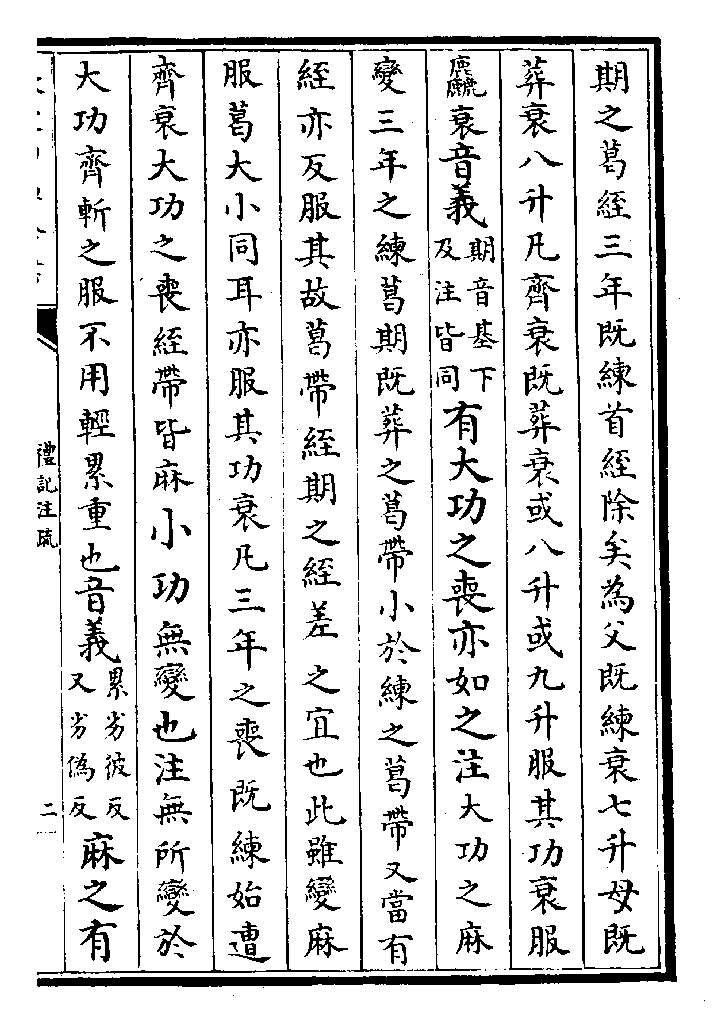 期之葛絰三年既練首絰除矣為父既練衰七升母既
葬衰八升凡齊衰既葬衰或八升或九升服其功衰服
麤衰音義期音基下及注皆同有大功之喪亦如之注大功之麻
變三年之練葛期既葬之葛帶小於練之葛帶又當有
絰亦反服其故葛帶絰期之絰差之宜也此雖變麻
服葛大小同耳亦服其功衰凡三年之喪既練始遭
齊衰大功之喪絰帶皆麻小功無變也注無所變於
大功齊斬之服不用輕累重也音義累劣彼反又劣偽反麻之有
禮記注疏
二